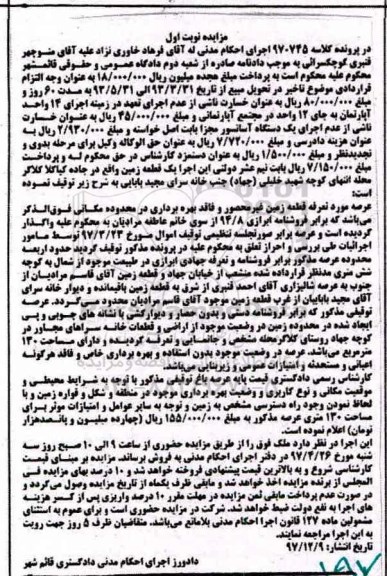 مزایده نوبت اول
در پرونده کلاسه ۹۷۰۷۴۵ اجرای احکام مدنی له آقای فرهاد خاوری نژاد علیه آقای منوچهر
قنبری کوچکسرائی به موجب دادنامه صادره از شعبه دوم دادگاه عمومی و حقوقی قائمشهر
محکوم علیه محکوم است به پرداخت مبلغ هجده میلیون ریال ۱۸/۰۰۰/۰۰۰ به عنوان وجه التزام
قراردادی موضوع تاخیر در تحویل مبیع از تاریخ ۹۳/۳/۳۱ الی ۹۳/۵/۳۱ به مدت ۶۰ روز و
۸۰/۰۰۰/۰۰۰ ریال به عنوان خسارت ناشی از عدم اجرای تعهد در زمینه اجرای ۱۴ واحد
آپارتمان به جای ۱۲ واحد در مجتمع آپارتمانی و مبلغ ۴۵/۰۰۰/۰۰۰ ریال به عنوان خسارت
ناشی از عدم اجرای یک دستگاه آسانسور مجزا بابت اصل خواسته و مبلغ ۲/۹۳۰/۰۰۰ ریال به
عنوان هزینه دادرسی و مبلغ ۷/۷۲۰/۰۰۰ ریال به عنوان حق الوکاله وکیل برای مرحله بدوی و
تجدیدنظر و مبلغ ۱/۵۰۰/۰۰۰ ریال به عنوان دستمزد کارشناس در حق محکوم له و پرداخت
مبلغ ۷/۱۵۰/۰۰۰ ریال بابت نیم عشر دولتی این اجرا یک قطعه زمین واقع در جاده کیاکلا کلاگر
محله انتهای کوچه شهید خلیلی (جهاد) جنب خانه سرای مجید بابایی به شرح زیر توقیف نموده
است:
عرصه مورد تعرفه قطعه زمین غیرمحصور و فاقد بهره برداری در محدوده مکانی فوق‌الذکر
می‌باشد که برابر فروشنامه ابرازی ۱۳/۸ از سوی خانم عاطفه مرادیان به محکوم علیه واگذار
گردیده است و عرصه برابر صورتجلسه تنظیمی توقیف اموال مورخ ۹۷/۳/۲۳ توسط مامور
اجرائیات طی بررسی و احراز تعلق به محکوم علیه در پرونده مذکور توقیف گردید حدود اربعه
محدوده عرصه مذکور برابر فروشنامه و تعرفه جهادی ابرازی در طبیعت موجود از شمال به کوچه
شش متری مدنظر قرارداده شده منشعب از خیابان جهاد و قطعه زمین آقای قاسم مرادیان از
جنوب به عرصه شالیزاری آقای احمد قنبری از شرق به قطعه زمین باقیمانده و دیوار خانه سرای
آقای مجید باباییان از غرب قطعه زمین موجود آقای قاسم مرادیان محدود می‌گردد. عرصه
توقیفی مذکور که برابر فروشنامه دستی و بدون حصار و دیوارکشی با نشانه های چوبی و پی
ایجاد شده در محدوده زمین در وضعیت موجود از اراضی و قطعات خانه سراهای مجاور در
کوچه جهاد روستای کلاگرمحله مشخص و جانمایی و تعرفه گردیده و دارای مساحت ۱۳۰
مترمربع می‌باشد. عرصه در وضعیت موجود بدون استفاده و بهره برداری خاص و فاقد هرگونه
اعیانی و مستحدثه و امتیازات عمومی و زیربنایی می‌باشد.
کارشناس رسمی دادگستری قیمت پایه عرصه باغ توقیفی مذکور با توجه به شرایط محیطی و
موقعیت مکانی و نوع کاربری و وضعیت بهره برداری موجود در منطقه و شکل و قواره زمین و با
لحاظ نمودن وجود راه دسترسی مشخص به زمین و توجه به سایر عوامل و امتیازات موثر برای
مساحت ۱۳۰ متری عرصه مذکور به مبلغ ۱۵۵/۰۰۰/۰۰۰ ریال (چهارده میلیون و پانصدهزار
تومان) اعلام نموده است.
این اجرا در نظر دارد ملک فوق را از طریق مزایده حضوری از ساعت ۹ الی ۱۰ صبح روز سه
شنبه مورخ ۹۷/۴/۲۶ در دفتر اجرای احکام مدنی به فروش برساند. مزایده بر مبنای قیمت
کارشناسی شروع و به بالاترین قیمت پیشنهادی فروخته خواهد شد و ۱۰ درصد بهای مزایده فی
المجلس از برنده مزایده اخذ خواهد شد و مابقی ظرف یکماه از تاریخ مزایده وصول می‌گردد و
در صورت عدم پرداخت مابقی ثمن مزایده در مهلت مقرر ۱۰ درصد واریزی پس از کسر هزینه
های اجرا به نفع دولت ضبط خواهد شد. شرکت در مزایده حضوری است و برای عموم به استثنای
مشمولین ماده ۱۲۷ قانون اجرا احکام مدنی بلامانع می‌باشد. متقاضیان ظرف ۵ روز جهت رویت
به این اجرا مراجعه نمایند.
تاریخ انتشار: ۹۷/۱۲/۹
دادورز اجرای احکام مدنی دادگستری قائم شهر